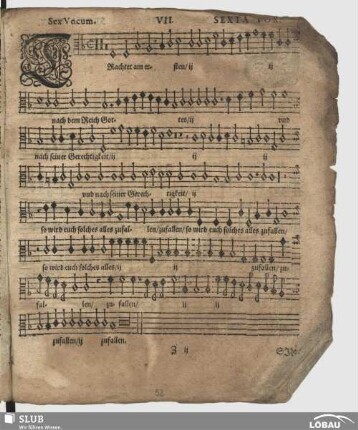 Sex Vocum. VII. SEXTA VOX.
TRachtet am er- sten/ij ij
nach dem Reich Got- tes/ij und
nach seiner Gerechtigkeit/ij ij ij
und nach seiner Gerech- tigkeit/ij
so wird euch solches alles zufal- len/zufallen/so wird euch solches alles zufallen/
so wird euch solches alles/ij ij zufallen/zu-
fal- len/zu- fallen/ij ij
zufallen/ij zufallen.
3 ij
SLUB
Wir führen Wissen.
LÖBAU